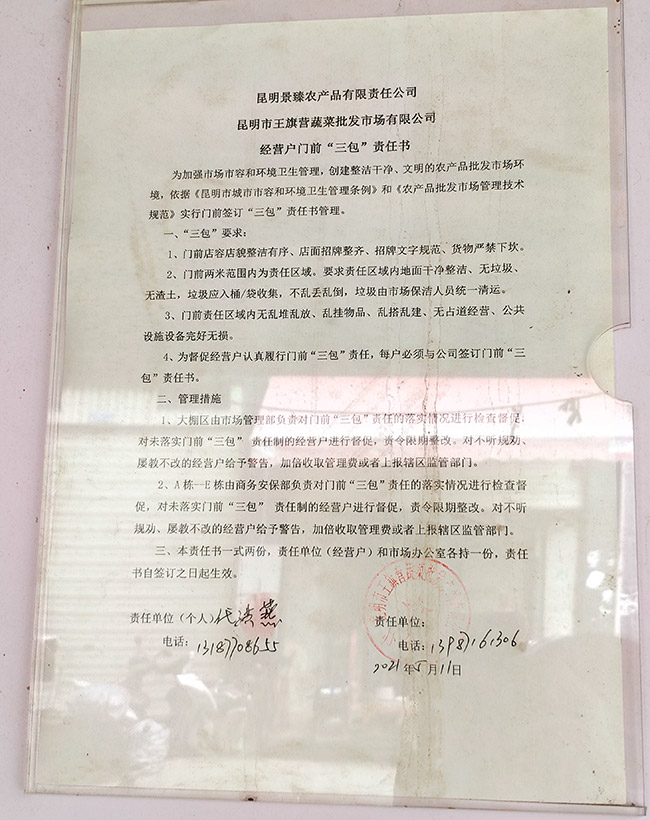 昆明景臻农产品有限责任公司
昆明市王旗营蔬菜批发市场有限公司
经营户门前“三包”责任书
为加强市场市容和环境卫生管理，创建整洁干净、文明的农产品批发市场环
境，依据《昆明市城市市容和环境卫生管理条例》和《农产品批发市场管理技术
规范》实行门前签订“三包”责任书管理。
一、“三包”要求：
1、门前店容店貌整洁有序、店面招牌整齐、招牌文字规范、货物严禁下坎。
2、门前两米范围内为责任区域。要求责任区域内地面干净整洁、无垃圾、
无渣土，垃圾应入桶/袋收集，不乱丢乱倒，垃圾由市场保洁人员统一清运。
3、门前责任区域内无乱堆乱放、乱挂物品、乱搭乱建、无占道经营、公共
设施设备完好无损。
4、为督促经营户认真履行门前“三包”责任，每户必须与公司签订门前“三
包”责任书。
二、管理措施
1、大棚区由市场管理部负责对门前“三包”责任的落实情况进行检查督促，
对未落实门前“三包” 责任制的经营户进行督促，责令限期整改。对不听规劝、
屡教不改的经营户给予警告，加倍收取管理费或者上报辖区监管部门。
2、A栋—E栋由商务安保部负责对门前“三包”责任的落实情况进行检查督
促，对未落实门前“三包” 责任制的经营户进行督促，责令限期整改。对不听
规劝、屡教不改的经营户给予警告，加倍收取管理费或者上报辖区监管部门。
三、本责任书一式两份，责任单位（经营户）和市场办公室各持一份，责任
书自签订之日起生效。
责任单位（个人） 责任单位：
昆明市王旗营蔬菜批发市场有限公司
电话：13187708655 电话：13987161306
2021年5月11日